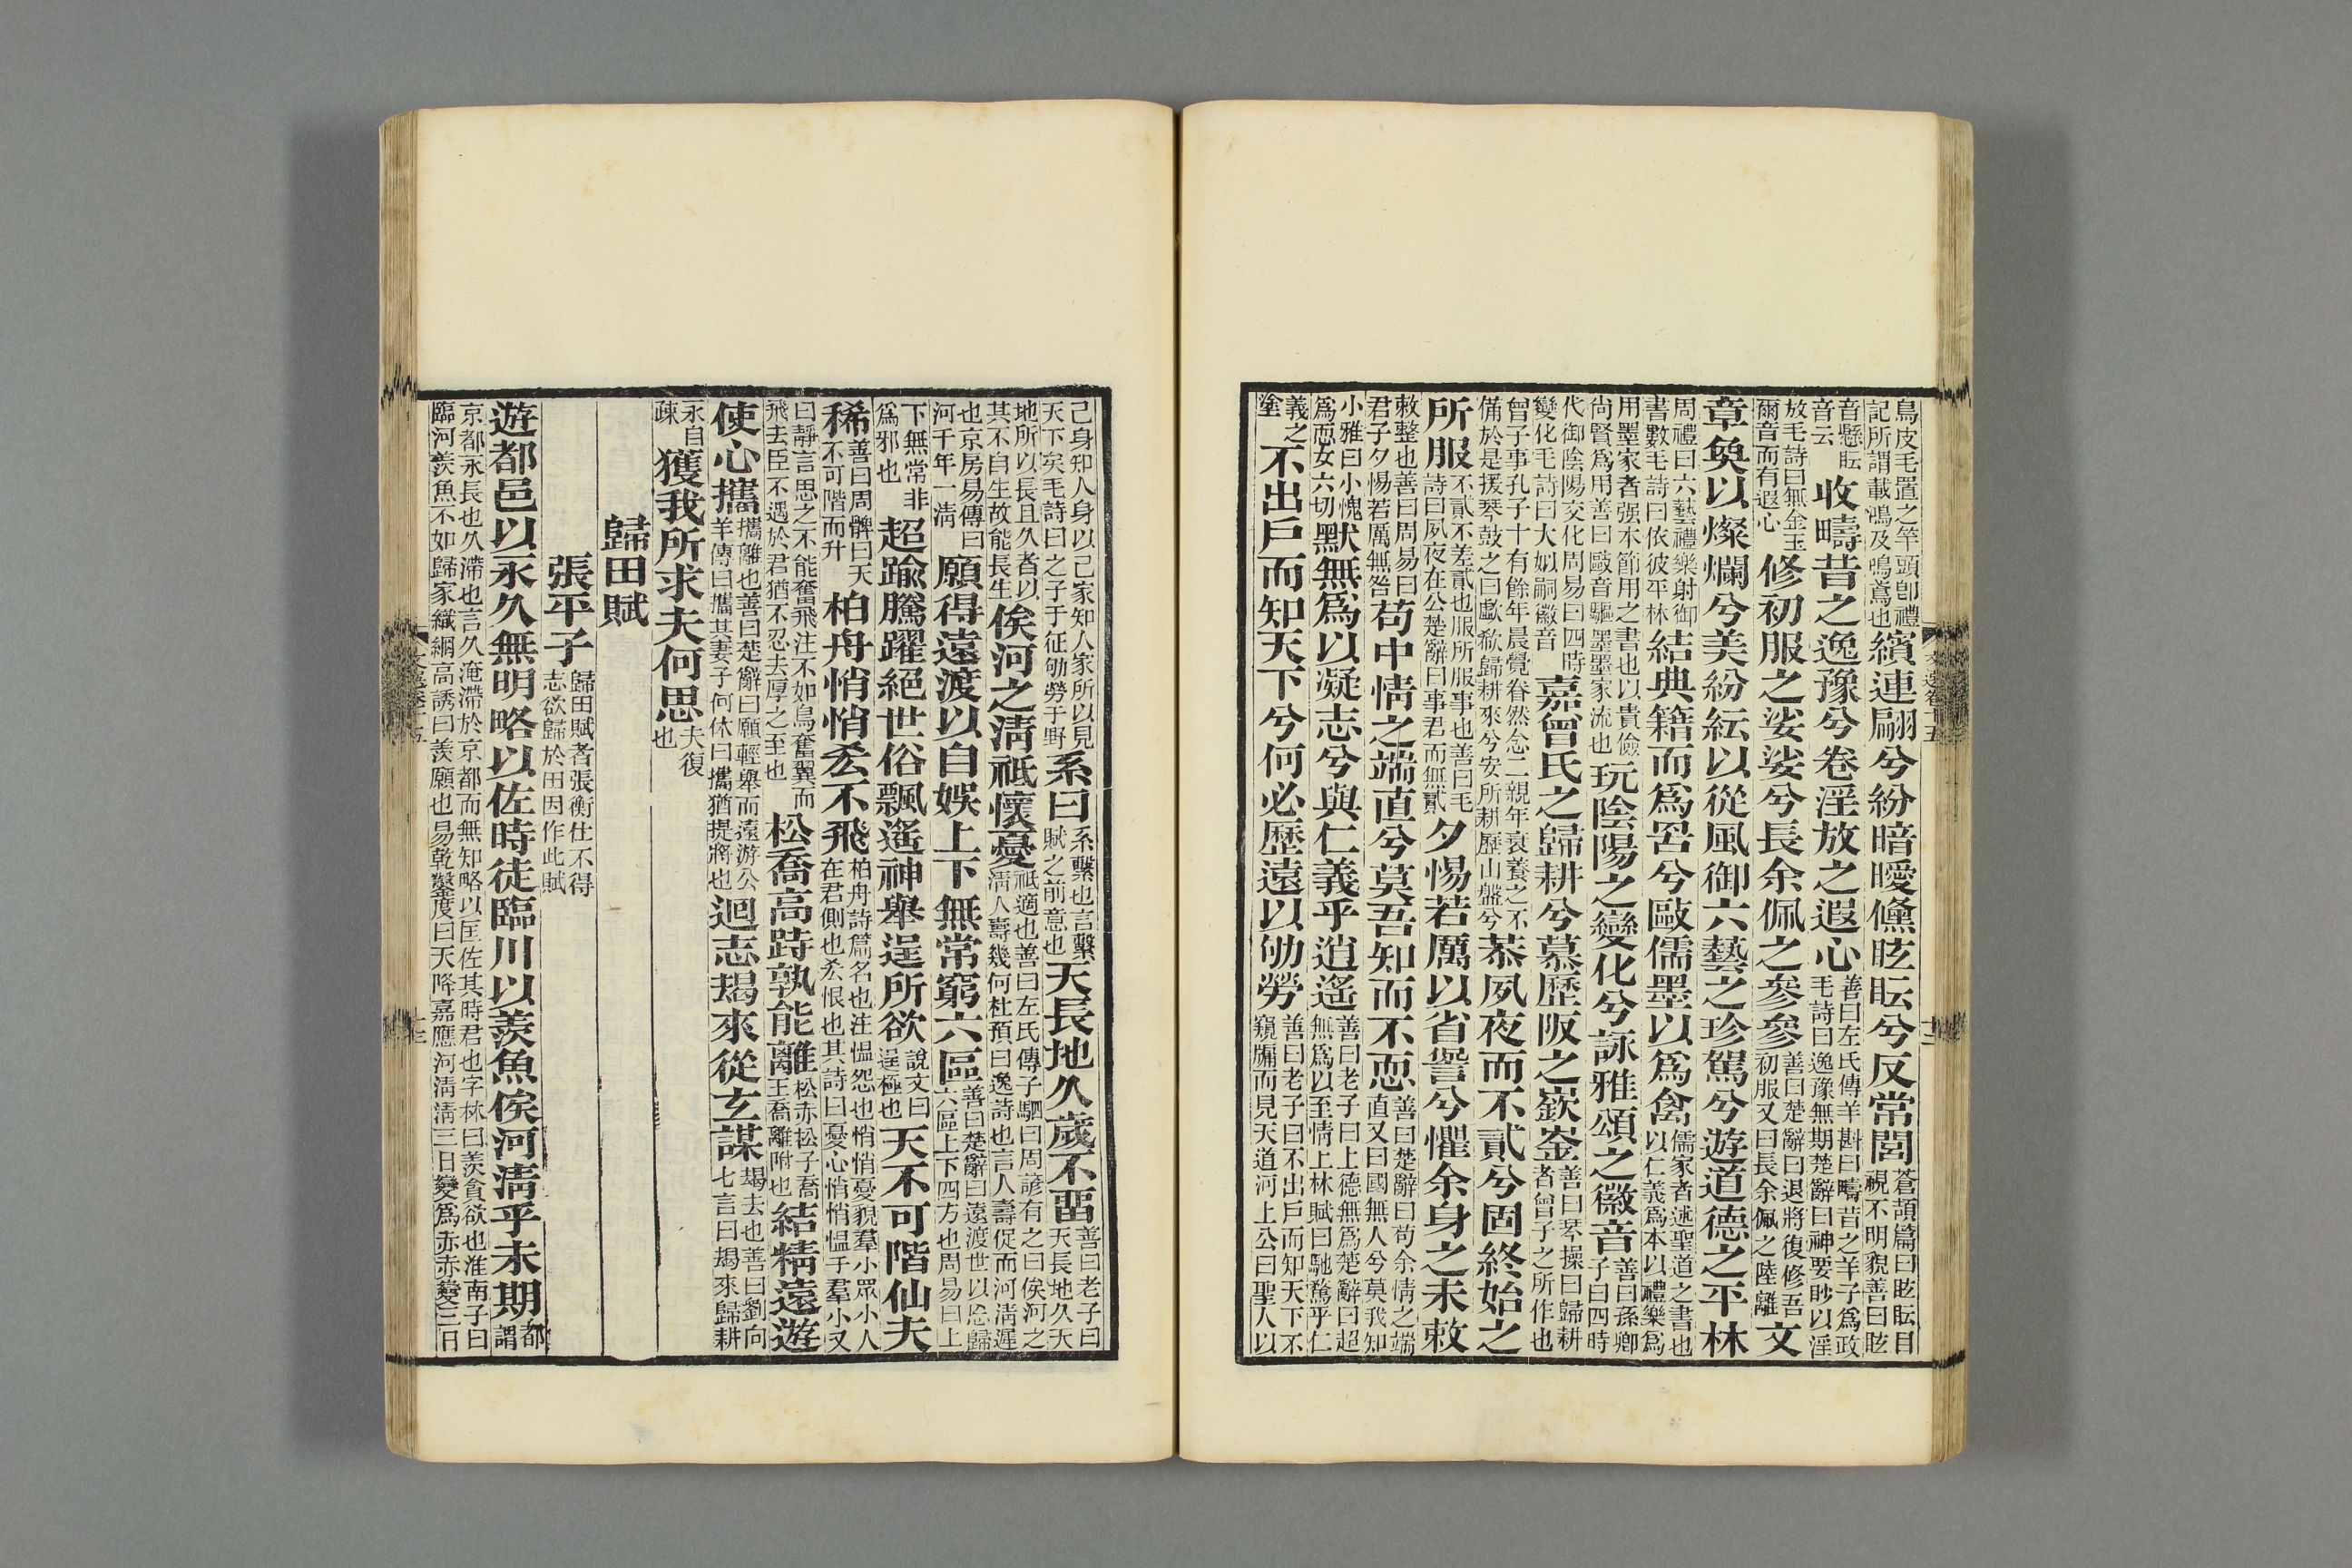 鳥皮毛置之竿頭卽禮記所謂載鴻及鳴鳶也繽連翩兮紛暗曖儵眩眃兮反常閭蒼頡篇曰眩眃目視不明貌善曰眩
音懸眃音云收疇昔之逸豫兮卷淫放之遐心善曰左氏傳羊斟曰疇昔之羊子爲政毛詩曰逸豫無期楚辭曰神要眇以淫
放毛詩曰無金玉爾音而有遐心修初服之娑娑兮長余佩之參參善曰楚辭曰退將復修吾初服又曰長余佩之陸離文
章奐以燦爛兮美紛紜以從風御六藝之珍駕兮遊道德之平林
周禮曰六藝禮樂射御書數毛詩曰依彼平林結典籍而爲罟兮敺儒墨以爲禽儒家者述聖道之書也以仁義爲本以禮樂爲
用墨家者强本節用之書也以貴儉尚賢爲用善曰敺音驅墨墨家流也玩陰陽之變化兮詠雅頌之徽音善曰孫卿子曰四時
代御陰陽交化周易曰四時變化毛詩曰大姒嗣徽音嘉曾氏之歸耕兮慕歷阪之嶔崟善曰琴操曰歸耕者曾子之所作也
曾子事孔子十有餘年晨覺眷然念二親年衰養之不備於是援琴鼓之曰歔欷歸耕來兮安所耕歷山盤兮恭夙夜而不貳兮固終始之
所服不貳不差貳也服所服事也善曰毛詩曰夙夜在公楚辭曰事君而無貳夕惕若厲以省諐兮懼余身之未敕
敕整也善曰周易曰君子夕惕若厲無咎苟中情之端直兮莫吾知而不恧善曰楚辭曰苟余情之端直又曰國無人兮莫我知
小雅曰小愧爲恧女六切默無爲以凝志兮與仁義乎逍遙善曰老子曰上德無爲楚辭曰超無爲以至情上林賦曰馳騖乎仁
義之塗不出戶而知天下兮何必歷遠以劬勞善曰老子曰不出戶而知天下不窺牖而見天道河上公曰聖人以
己身知人身以己家知人家所以見天下矣毛詩曰之子于征劬勞于野系曰系繫也言繫賦之前意也天長地久歲不留善曰老子曰天長地久天
地所以長且久者以其不自生故能長生俟河之淸祗懷憂祗適也善曰左氏傳子駟曰周諺有之曰俟河之淸人壽幾何杜預曰逸詩也言人壽促而河淸遲
也京房易傳曰河千年一淸願得遠渡以自娛上下無常窮六區善曰楚辭曰遠渡世以忘歸六區上下四方也周易曰上
下無常非爲邪也超踰騰躍絕世俗飄遙神舉逞所欲說文曰逞極也天不可階仙夫
稀善曰周髀曰天不可階而升柏舟悄悄吝不飛柏舟詩篇名也注愠怨也悄悄憂貌羣小眾小人在君側也吝恨也其詩曰憂心悄悄愠于羣小又
曰靜言思之不能奮飛注不如鳥奮翼而飛去臣不遇於君猶不忍去厚之至也松喬高跱孰能離松赤松子喬王喬離附也結精遠遊
使心攜攜離也善曰楚辭曰願輕舉而遠游公羊傳曰攜其妻子何休曰攜猶提將也迴志朅來從玄謀朅去也善曰劉向七言曰朅來歸耕
永自疎獲我所求夫何思夫復也
歸田賦
張平子歸田賦者張衡仕不得志欲歸於田因作此賦
遊都邑以永久無明略以佐時徒臨川以羨魚俟河淸乎未期都謂
京都永長也久滯也言久淹滯於京都而無知略以匡佐其時君也字林曰羨貪欲也淮南子曰臨河羨魚不如歸家織網高誘曰羨願也易乾鑿度曰天降嘉應河淸淸三日變爲赤赤變三日